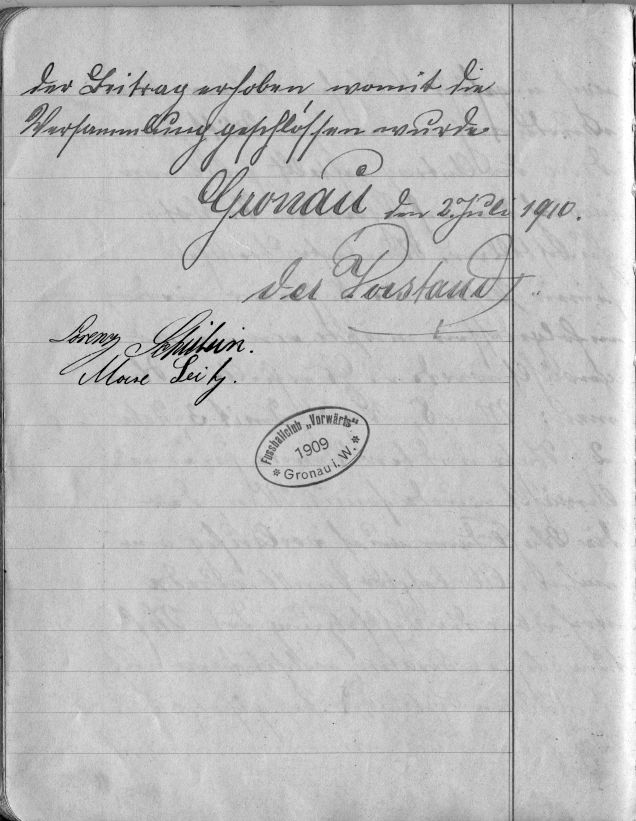 der Beitrag erhoben womit die
Versammlung geschlossen wurde
Gronau den 2. Juli 1910.
der Vorstand
Lorenz
Max Seitz.
Fussballclub „Vorwärts“
1909
* Gronau i. W. *